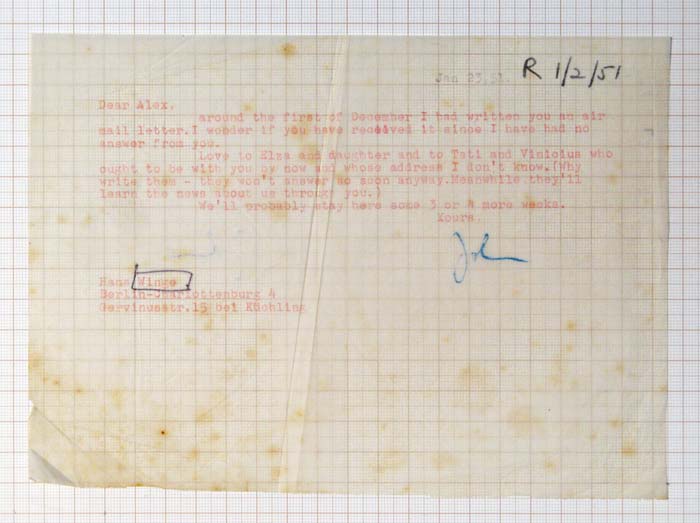 Jan 23,51.
R 1/2/51
Dear Alex,
around the first of December I had written you an air
mail letter.I wonder if you have received it since I have had no
answer from you.
Love to Elza and daughter and to Tati and Vinicius who
ought to be with you by now and whose address I don't know.(Why
write them - they won't answer so soon anyway.Meanwhile.they'll
learn the news about us through you.
We'll probably stay here some 3 or 4 more weeks.
Yours.
Hans Winge
Berlin-Charlottenburg 4
Gervinusstr.15 bei Küchling